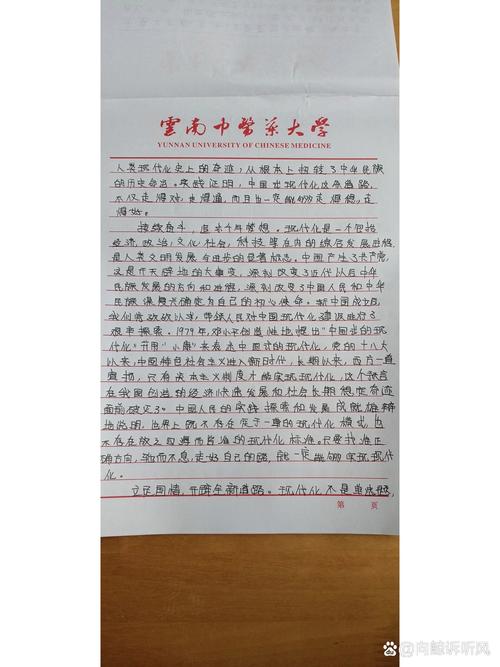 雲南中醫藥大學
YUNNAN UNIVERSITY OF CHINESE MEDICINE
人类现代化史上的奇迹,从根本上扭转了中华民族
的历史命运。实践证明,中国式现代化这条道路,
不仅走得对,走得通,而且也一定能够走得稳,走
得好。
接续奋斗,追求千年梦想。现代化是一个包括
经济,政治,文化社会,科技等在内的综合发展进程,
是人类文明发展与进步的显著标志。中国产生了共产党,
这是开天辟地的大事变,深刻改变了近代以后中华
民族发展的方向和进程,深刻改变了中国人民和中华
民族 谋复兴确定为自己的初心使命。新中国成立后,
我们党 带领人民对中国现代化建设进行了
艰辛探索。1979年,邓小平创造性地提出“中国式的现代
化”并用“小康”来表述中国式的现代化,党的十八大
以来,中国特色社会主义进入新时代,长期以来,西方一直
宣扬,只有资本主义制度才能实现现代化,这个预言
在我国创造的经济快速发展和社会长期稳定奇迹
面前破灭了。中国人民的实践探索和发展成就雄辩
地说明,世界上既不存在定于一尊的现代化模式,也
不存在放之四海而皆准的现代化标准。只要找准正
确方向,驰而不息,走好自己的路,就一定能够实现现代
化。
立足国情,开辟全新道路。现代化不是单选题,
第 页
@向鲸诉听风